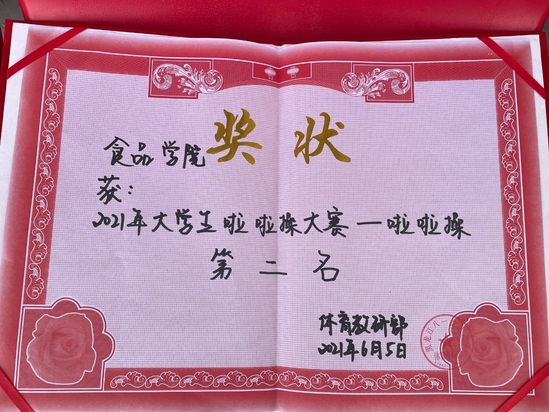 奖状
食品学院
获：
2021年大学生啦啦操大赛—啦啦操
第二名
体育教研部
2021年6月5日
黑龙江八一